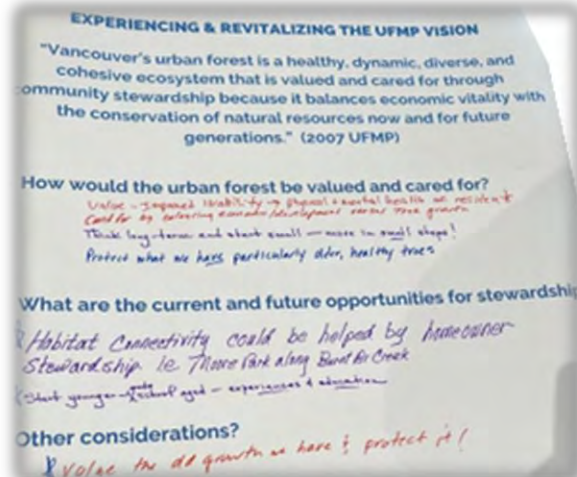 EXPERIENCING & REVITALIZING THE UFMP VISION
"Vancouver's urban forest is a healthy, dynamic, diverse, and
cohesive ecosystem that is valued and cared for through
ommunity stewardship because it balances economic vitality with
the conservation of natural resources now and for future
generations." (2007 UFMP)
How would the urban forest be valued and cared for?
Value - livability → physical + mental health
Cared for by development versus tree growth
Think long-term and start small - more in small steps!
Protect what we have particularly older, healthy trees
What are the current and future opportunities for stewardship
Habitat Connectivity could be helped by homeowner
Stewardship. Ie Park along Burnt Br Creek
Start younger - school aged - experiences & education
Other considerations?
Value the old growth we have & protect it!